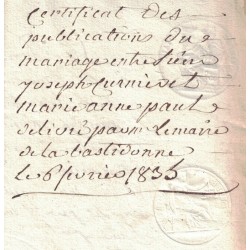 Certificat des
publications du
mariage entre Sieur
Joseph Curnier et
marie anne paul
delivré par m le maire
de la bastidonne
le 6 fevrier 1835